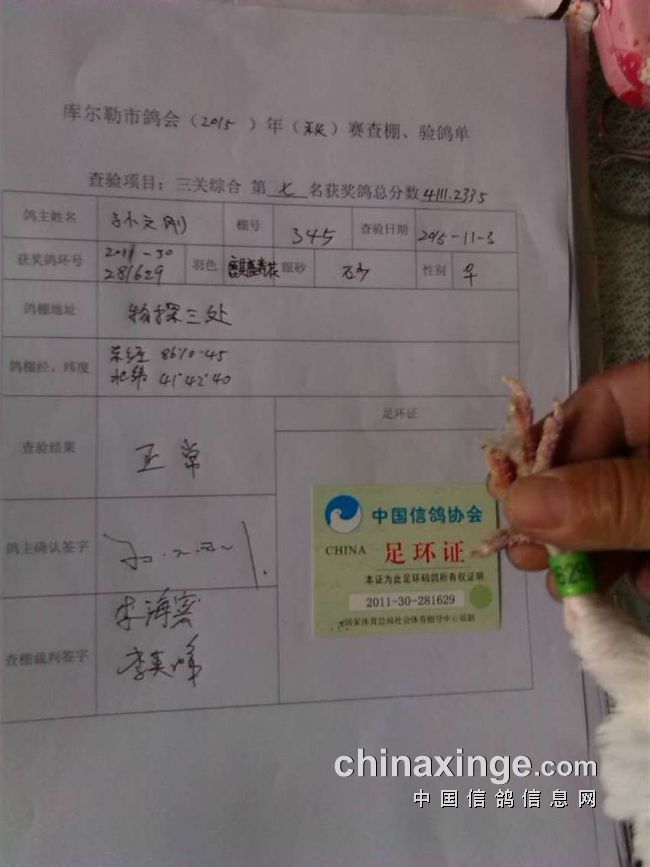 库尔勒市鸽会（2015 ）年（秋）赛查棚、验鸽单
查验项目：三关综合 第 七 名获奖鸽总分数 4111.2335
鸽主姓名 孙文刚 棚号 345 查验日期 2015-11-3
获奖鸽环号 2011-30 281629 羽色 麒麟青花 眼砂 石砂 性别 早
鸽棚地址 物探三处
鸽棚经、纬度 东经 86°10'45
北纬 41°42'40
查验结果 正常
足环证
鸽主确认签字
查棚裁判签字 李英峰
中国信鸽协会
CHINA 足环证
本证为此足环码鸽所有权证明
2011-30-281629
国家体育总局社会体育指导中心监制
629
chinaxinge.com
中国信鸽信息网